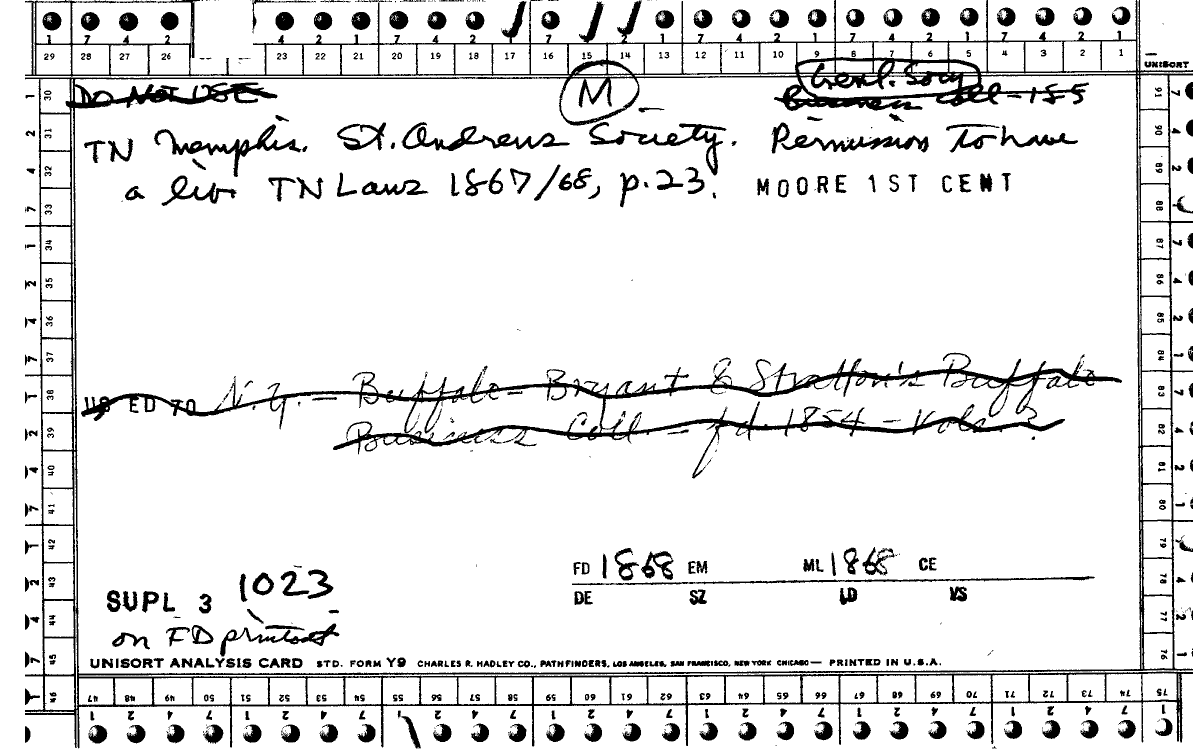 7 4 2 4 2 1 7 4 2 1 7 4 2 1 7 4 2 1 7 4 2 1
29 28 27 26 23 22 21 20 19 18 17 16 15 14 13 12 11 10 9 8 7 6 5 4 3 2 1
UNISORT
M
Genl. Socy
DO NOT USE
Business Coll - 185
TN Memphis. St. Andrews Society. Permission to have
a lib. TN Laws 1867/68, p.23. MOORE 1ST CENT
US ED 70 N.Y. - Buffalo - Bryant & Stratton's Buffalo
Business Coll. - fd. 1854 - Vols. ?
FD 1868 EM ML 1868 CE
DE SZ LD VS
SUPL 3 1023
on FD printout
UNISORT ANALYSIS CARD STD. FORM Y9 CHARLES R. HADLEY CO., PATHFINDERS, LOS ANGELES, SAN FRANCISCO, NEW YORK CHICAGO — PRINTED IN U.S.A.
47 48 49 50 51 52 53 54 55 56 57 58 59 60 61 62 63 64 65 66 67 68 69 70 71 72 73 74 75
1 2 4 7 1 2 4 7 1 2 4 7 1 2 4 7 1 2 4 7 1 2 4 7 1 2 4 7 1